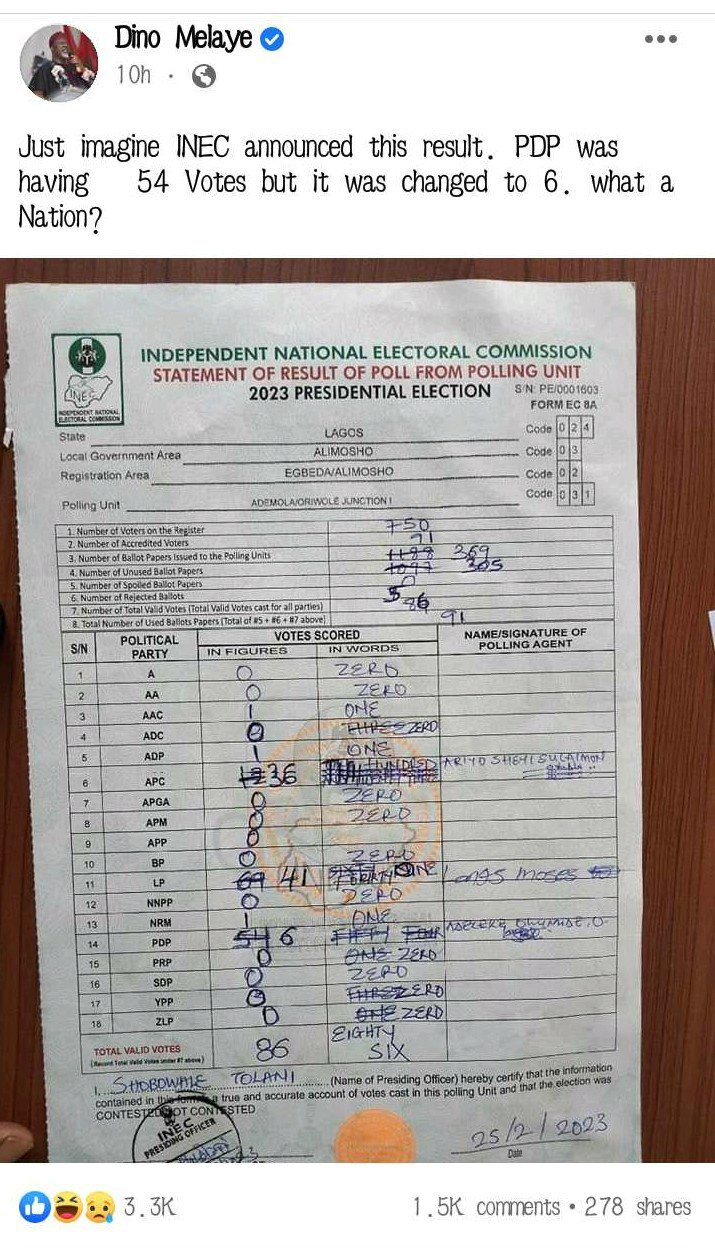 Dino Melaye
10h ·
Just imagine INEC announced this result. PDP was
having 54 Votes but it was changed to 6. what a
Nation?
INEC
INDEPENDENT NATIONAL
ELECTORAL COMMISSION
INDEPENDENT NATIONAL ELECTORAL COMMISSION
STATEMENT OF RESULT OF POLL FROM POLLING UNIT
2023 PRESIDENTIAL ELECTION S/N: PE/0001603
FORM EC 8A
State LAGOS Code 0 2 4
Local Government Area ALIMOSHO Code 0 3
Registration Area EGBEDA/ALIMOSHO Code 0 2
Polling Unit ADEMOLA/ORIWOLE JUNCTION I Code 0 3 1
1. Number of Voters on the Register 750
2. Number of Accredited Voters 91
3. Number of Ballot Papers Issued to the Polling Units 1188 369
4. Number of Unused Ballot Papers 1097 305
5. Number of Spoiled Ballot Papers 0
6. Number of Rejected Ballots 5
7. Number of Total Valid Votes (Total Valid Votes cast for all parties) 86
8. Total Number of Used Ballots Papers (Total of #5 + #6 + #7 above) 91
S/N POLITICAL PARTY VOTES SCORED NAME/SIGNATURE OF POLLING AGENT
IN FIGURES IN WORDS
1 A 0 ZERO
2 AA 0 ZERO
3 AAC 1 ONE
4 ADC 0 THREE ZERO
5 ADP 1 ONE
6 APC 36 HUNDLED ARIYO SHEYI SULAIMON
7 APGA 0 ZERO
8 APM 0 ZERO
9 APP 0
10 BP 0 ZERO
11 LP 69 41 FORTY ONE MOSES
12 NNPP 0 ZERO
13 NRM 1 ONE
14 PDP 54 6 FIFTY FOUR ADELEKE
15 PRP 0 ONE ZERO
16 SDP 0 ZERO
17 YPP 0 THREE ZERO
18 ZLP 0 ONE ZERO
TOTAL VALID VOTES 86 EIGHTY SIX
(Record Total Valid Votes under #7 above)
I, SHOBOWALE TOLANI (Name of Presiding Officer) hereby certify that the information
contained in this form is a true and accurate account of votes cast in this polling Unit and that the election was
CONTESTED/NOT CONTESTED
INEC
PRESIDING OFFICER
25/2/2023
Date
3.3K 1.5K comments • 278 shares